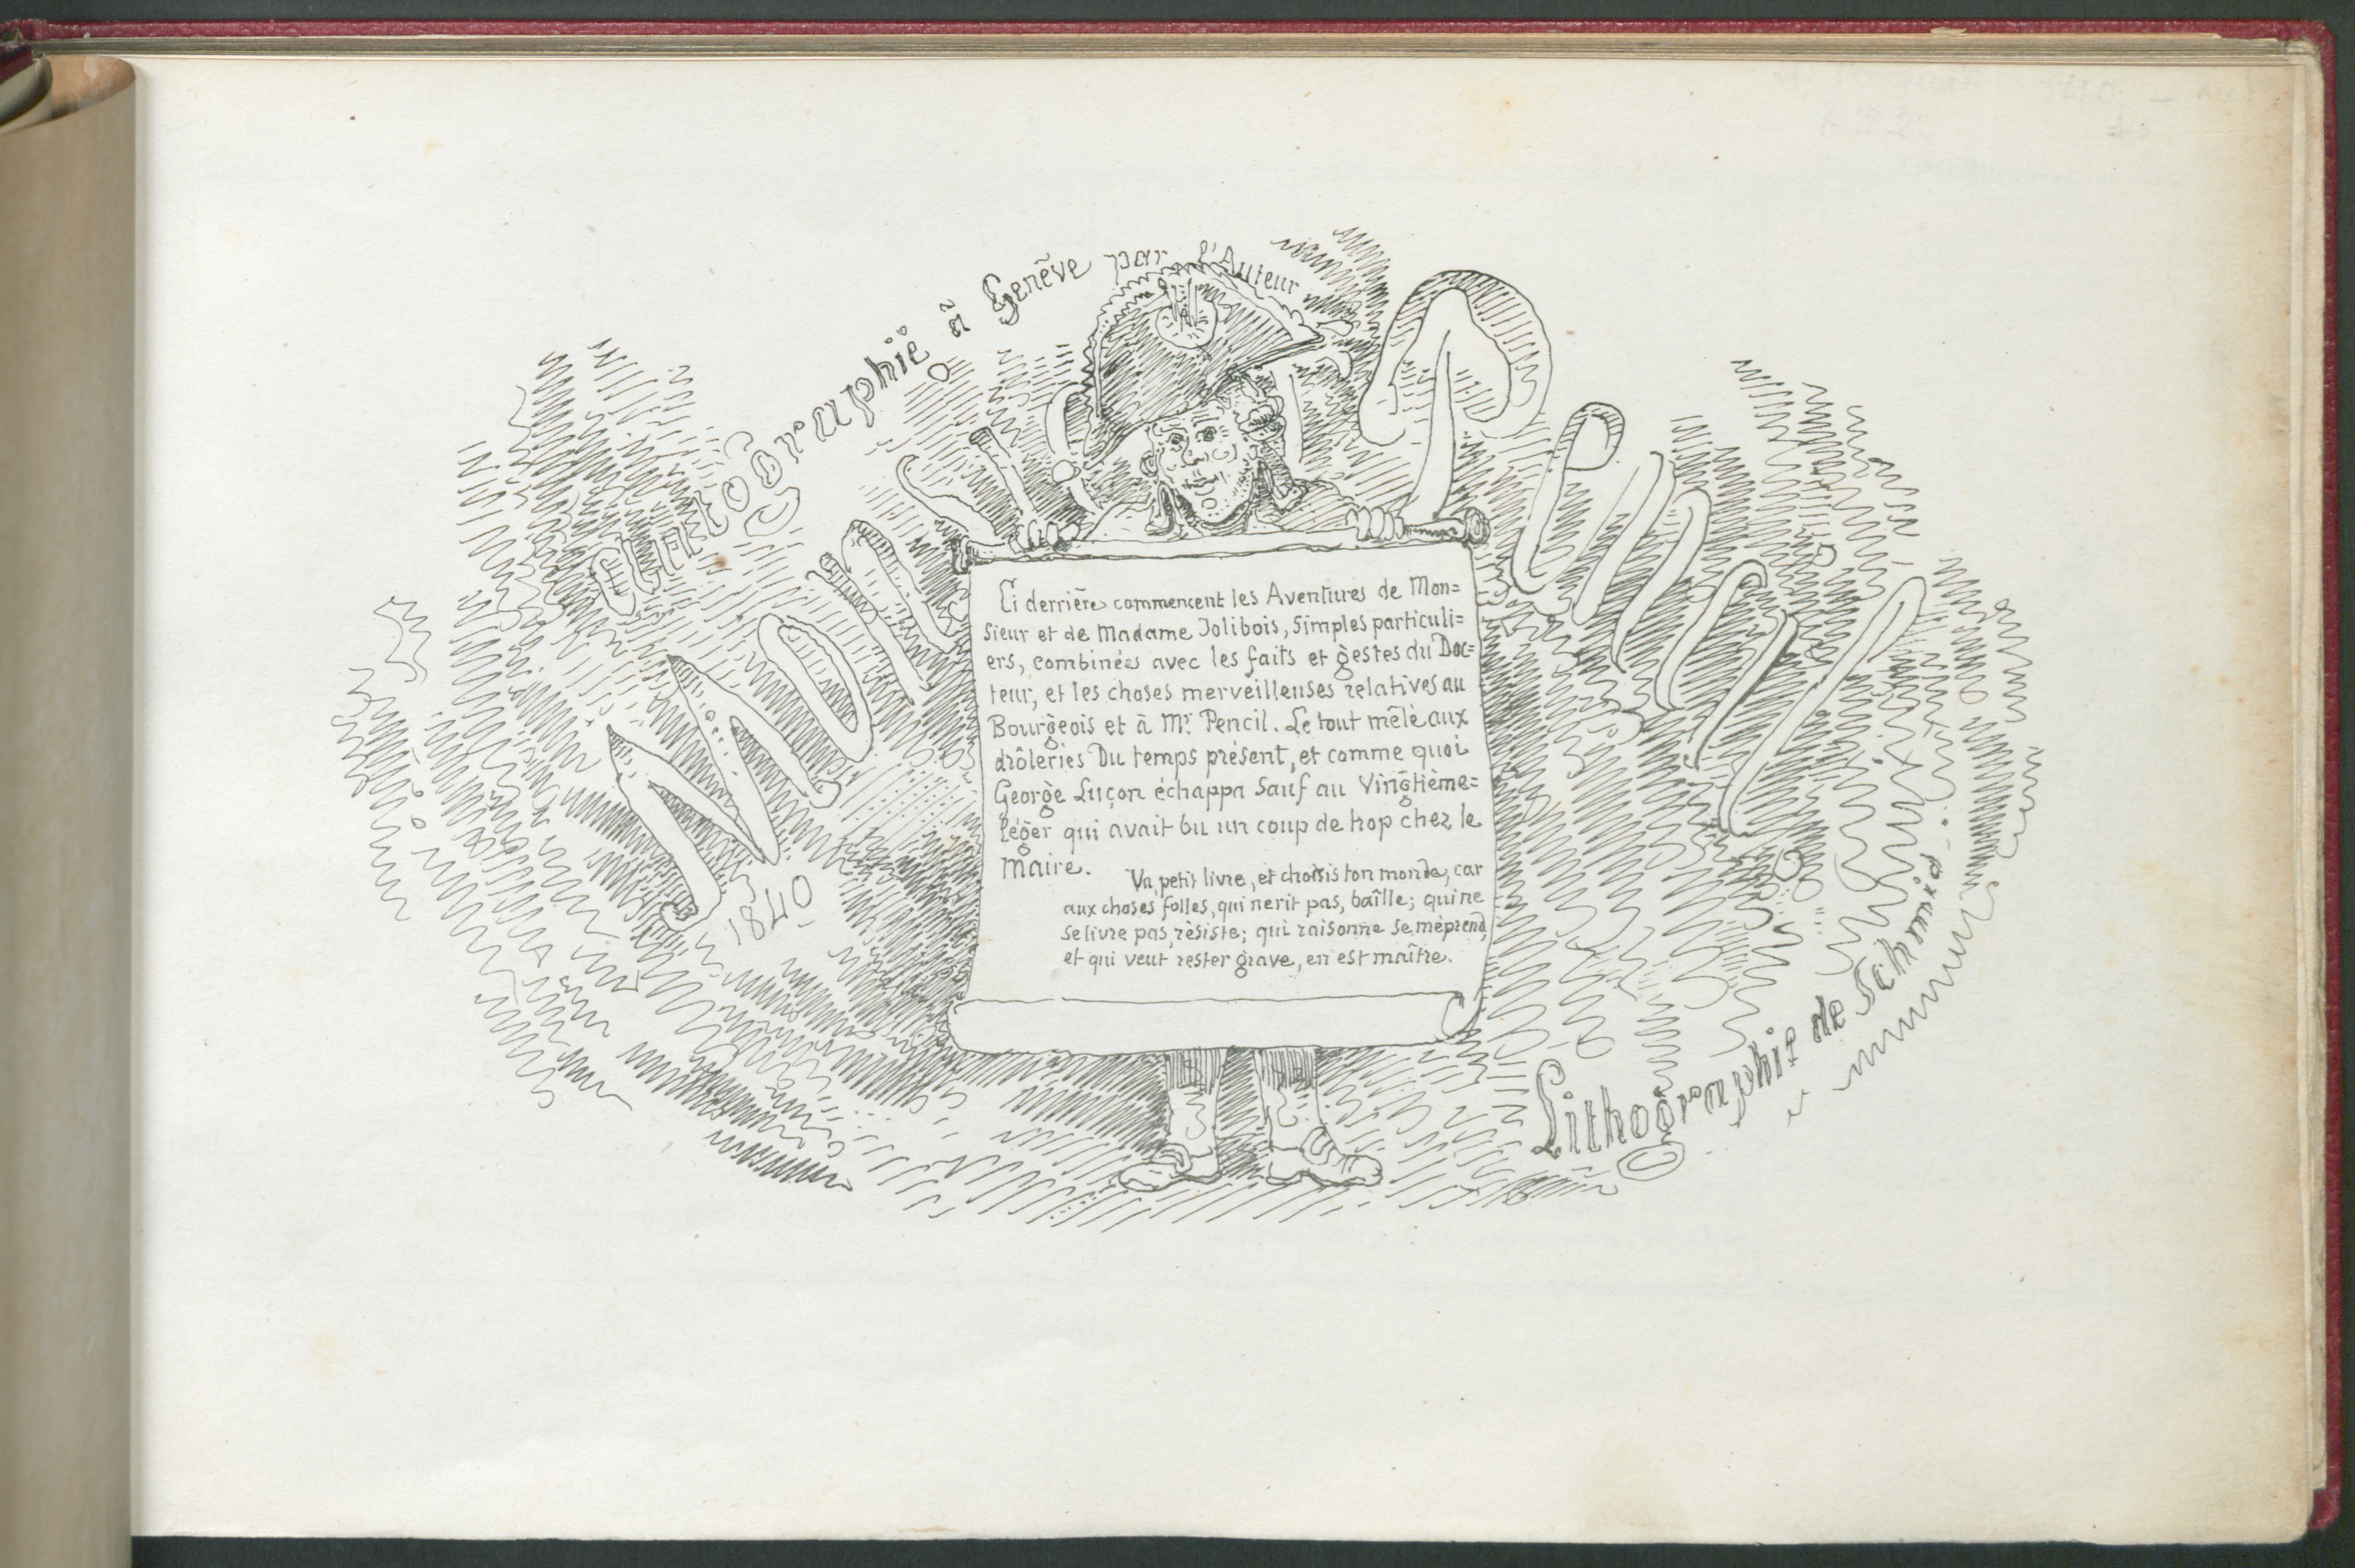 Autographié à Genêve par l'Auteur
MONSIEUR PENCIL
1840
Ci derrière commencent les Aventures de Mon=
sieur et de Madame Jolibois, Simples particuli=
ers, combinées avec les faits et gestes du Doc=
teur, et les choses merveilleuses relatives au
Bourgeois et à Mr. Pencil. Le tout mêlé aux
drôleries Du temps présent, et comme quoi
George Luçon échappa Sauf au Vingtième=
léger qui avait bu un coup de trop chez le
Maire.
Va, petit livre, et choisis ton monde, car
aux choses folles, qui ne rit pas, baîlle; qui ne
se livre pas, résiste; qui raisonne se méprend,
et qui veut rester grave, en est maître.
Lithographie de Schmid